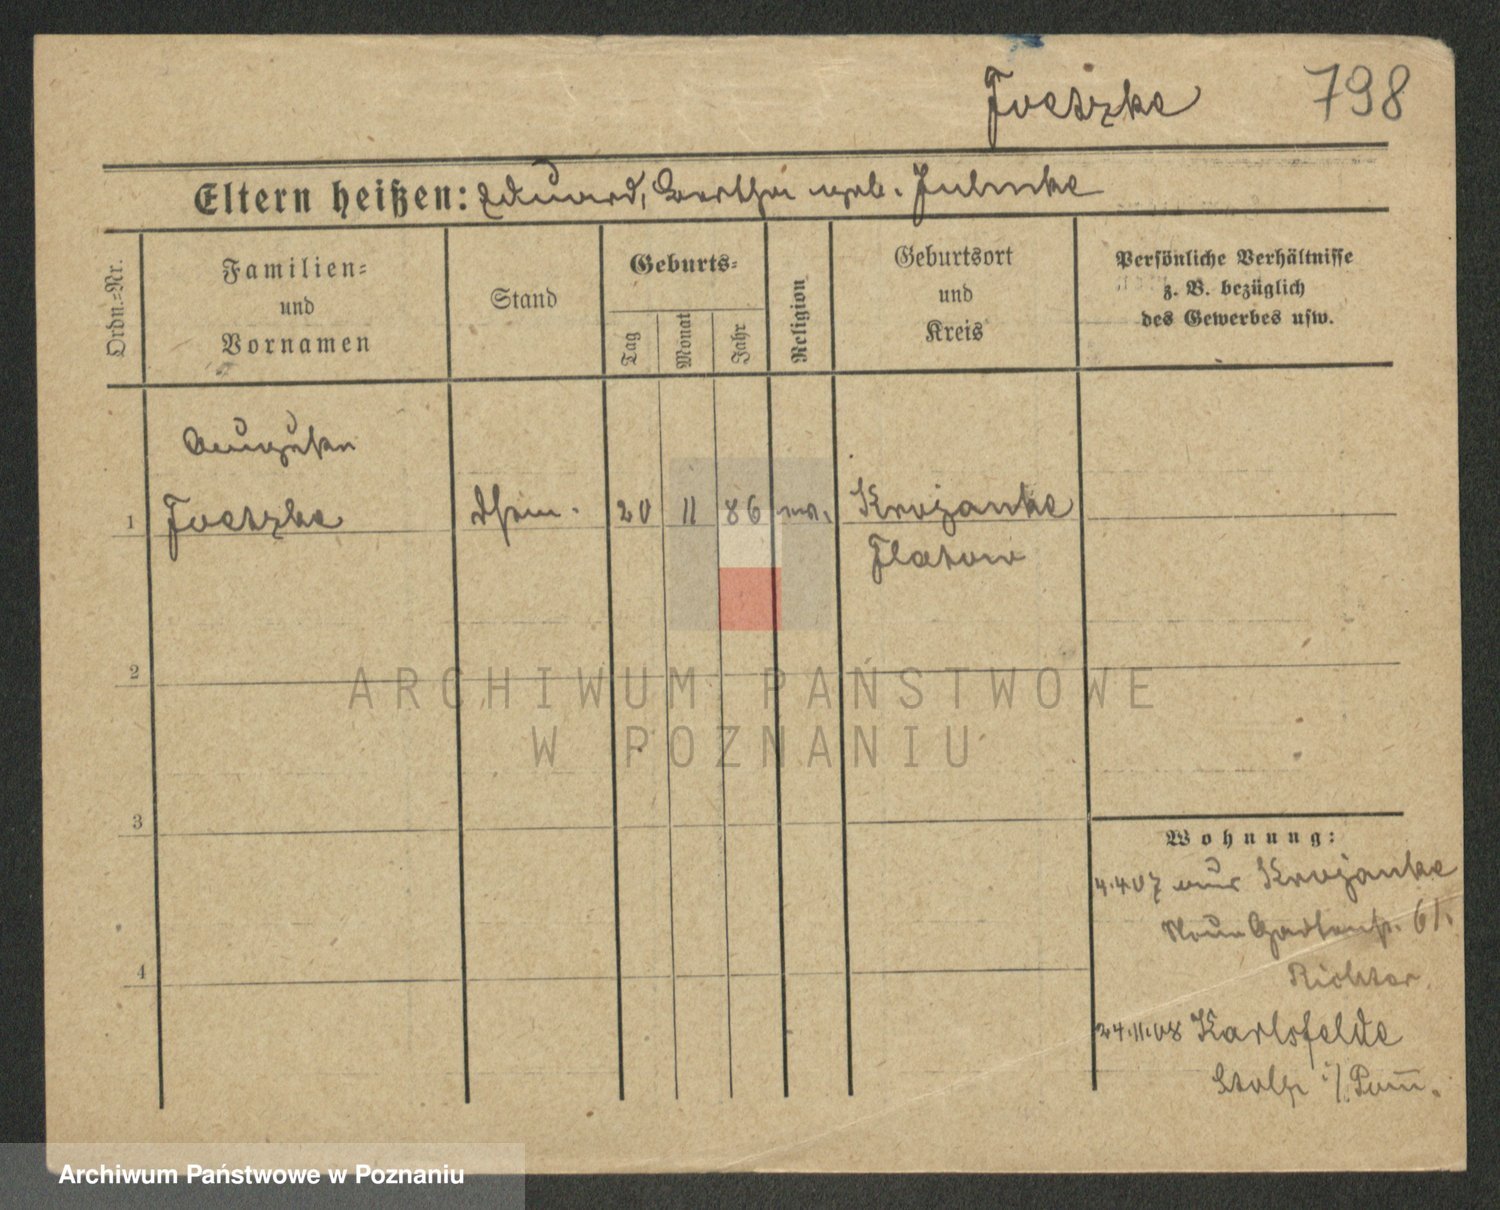 Joeszke 798
Eltern heißen: Eduard, Bertha geb.
Ordn.-Nr.
Familien-
und
Vornamen
Stand
Geburts-
Tag
Monat
Jahr
Religion
Geburtsort
und
Kreis
Persönliche Verhältnisse
z. B. bezüglich
des Gewerbes usw.
Auguste
1 Joeszke 20 11 86 Krojanke
Flatow
2
3
4
Wohnung:
4.4.07 aus Krojanke
Neue Gartenstr. 61.
Richter.
24.11.08 Karlsfelde
Stolp i/Pom̄.
ARCHIWUM PAŃSTWOWE
W POZNANIU
Archiwum Państwowe w Poznaniu